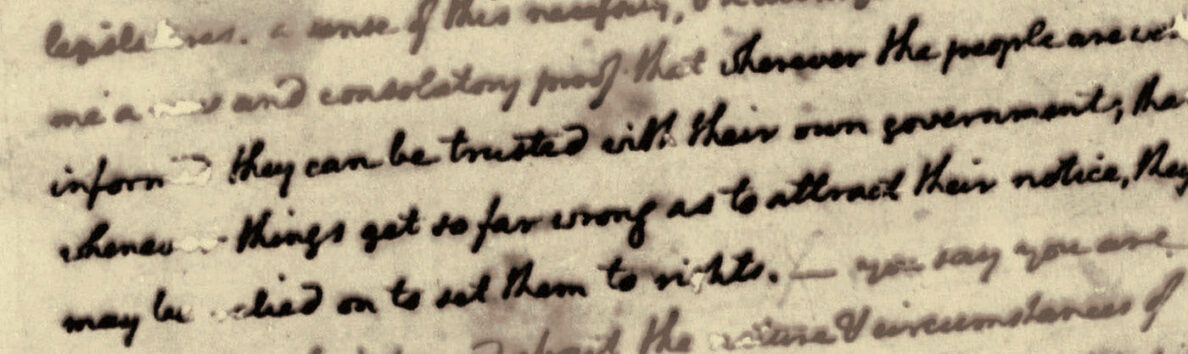 a sense of this necessity,
me a and consolatory proof that wherever the people are
inform they can be trusted with their own government; tha
whenev things get so far wrong as to attract their notice, they
may be lied on to set them to rights. — you say you are
the nature & circumstances of